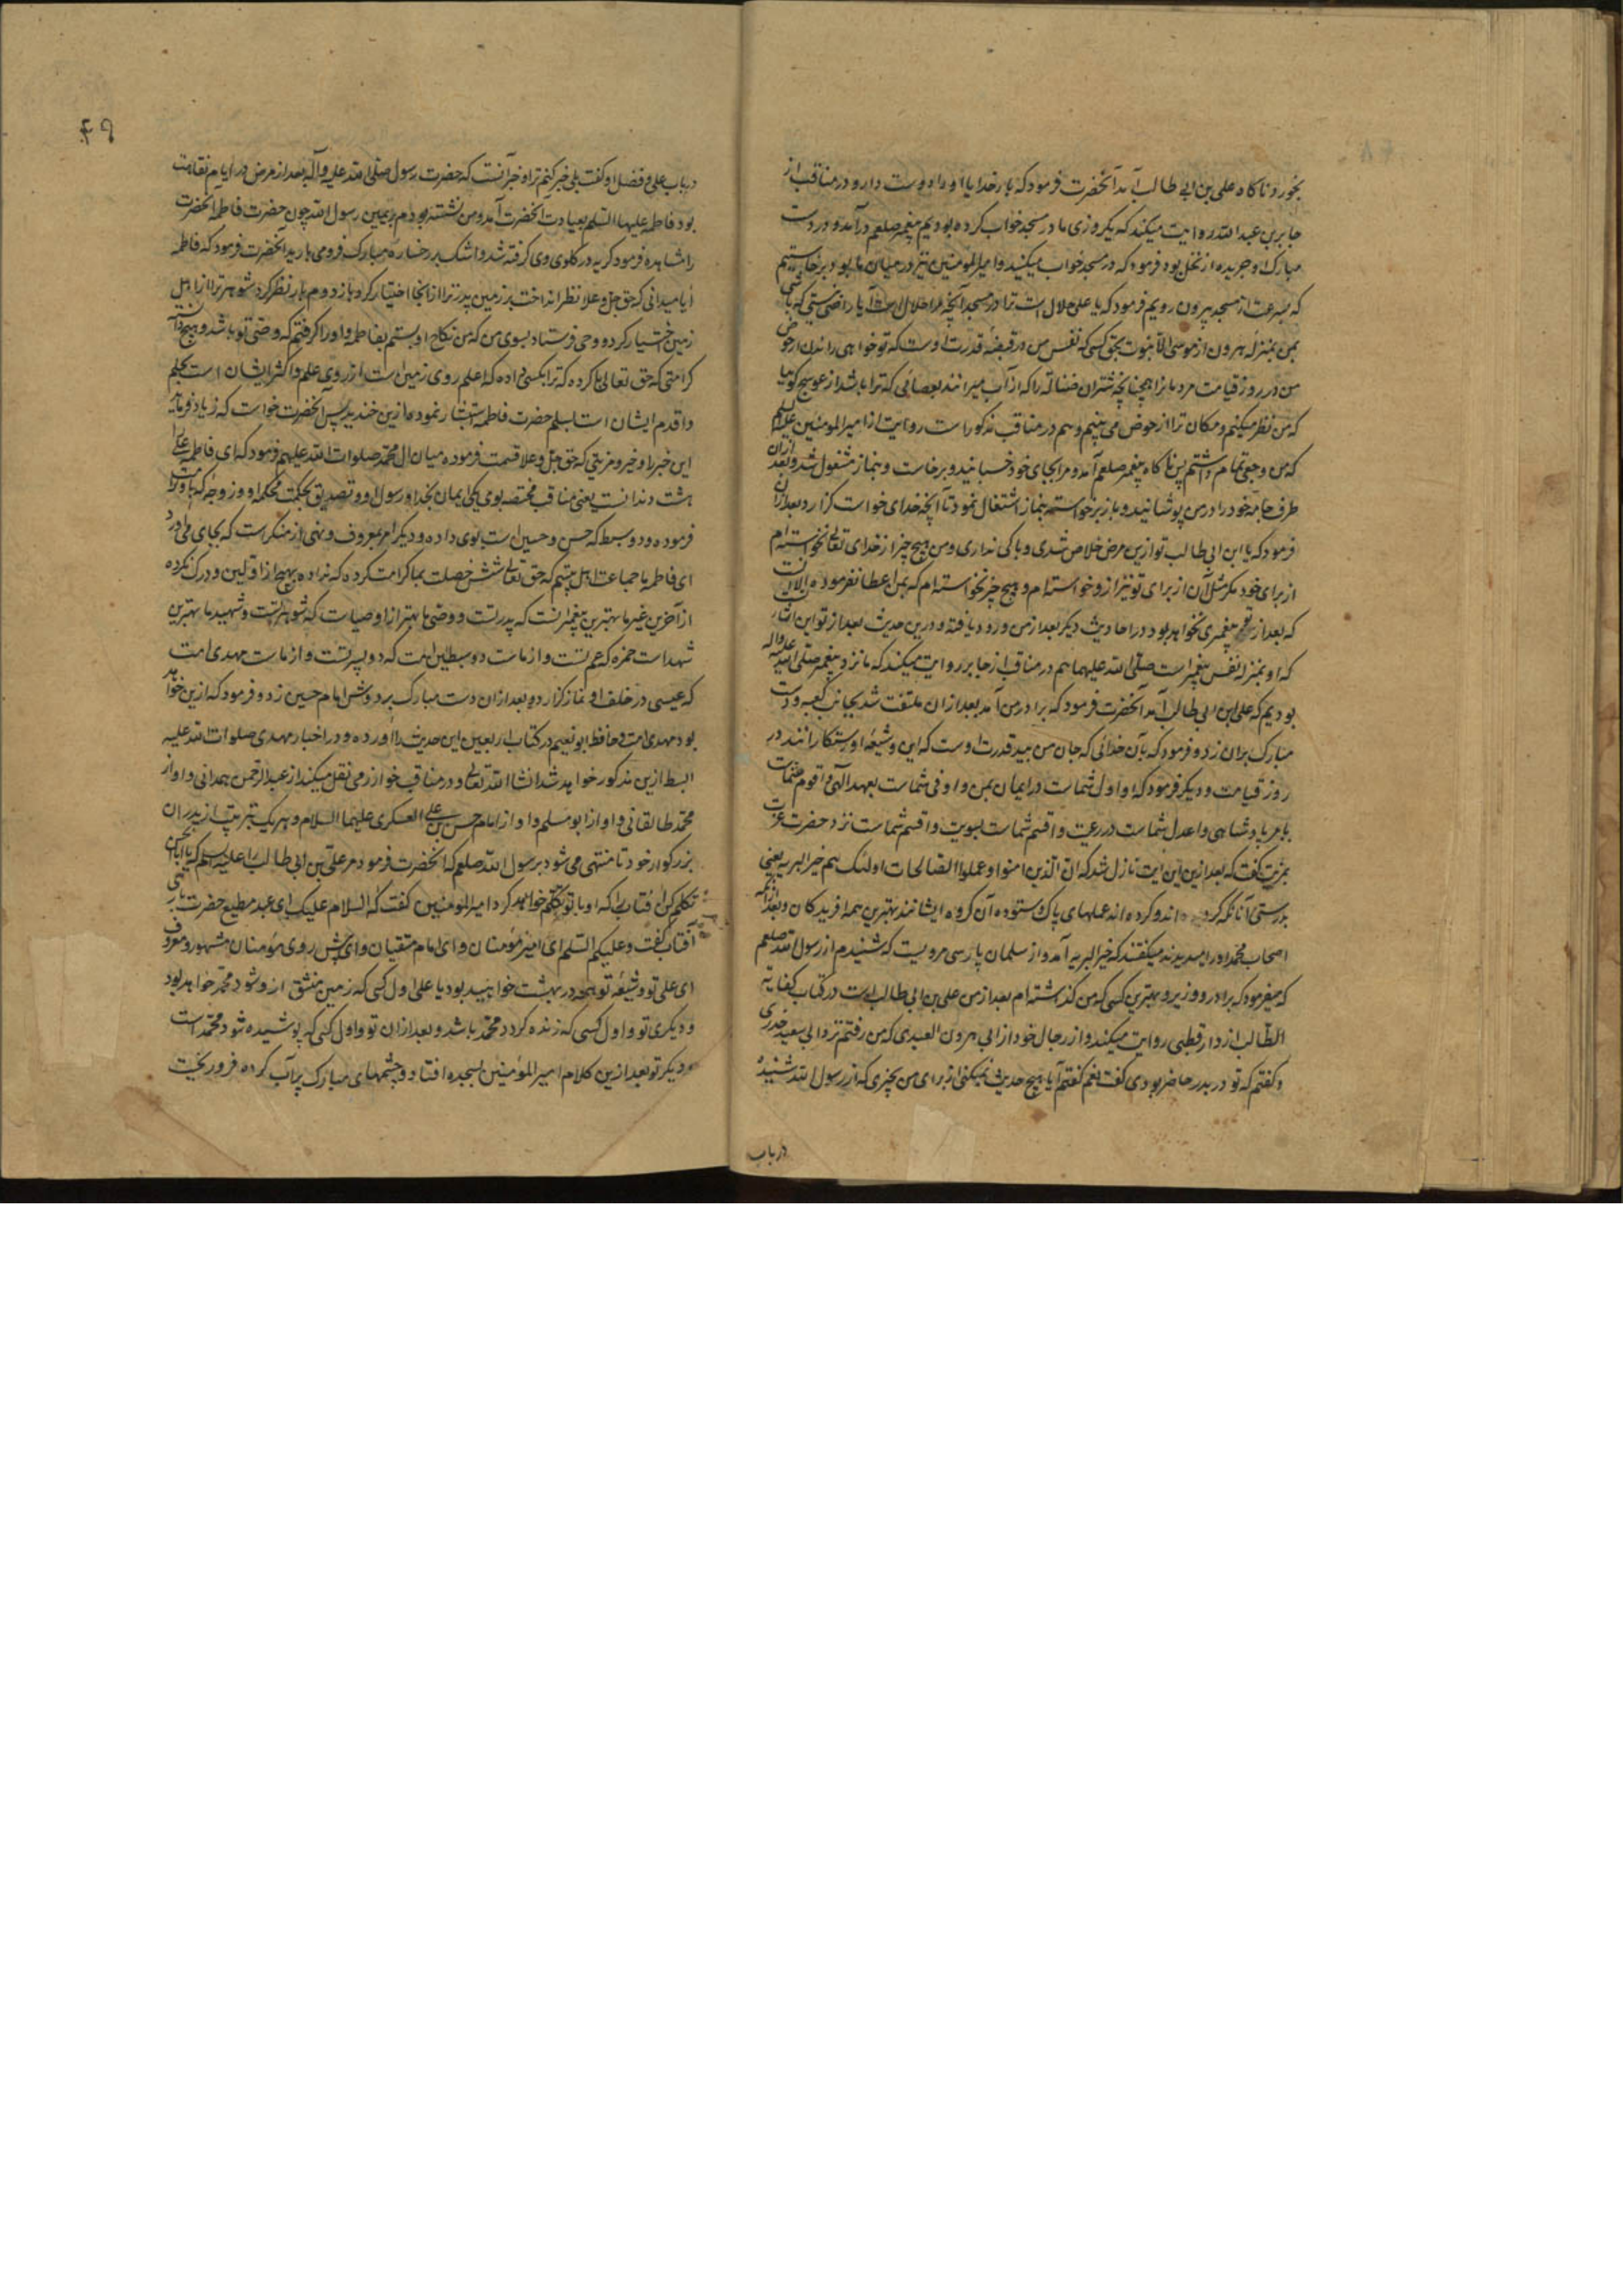 بخورد و ناکاه علی بن ابی طالب آمد آنحضرت فرمود که بار خدایا او را دوست دار و در مناقب از
جابر بن عبد الله روایت میکند که یکروزی ما در مسجد خواب کرده بودیم پیغمبر صلعم درآمد و در دست
مبارک او جریده از نخل بود فرمود که در مسجد خواب میکنید و امیرالمؤمنین نیز در میان ما بود برخاستیم
که بسرعت از مسجد بیرون رویم فرمود که یا علی حلال است ترا در مسجد آنچه مرا حلال است آیا راضی نیستی که باشی
بمن بمنزله هرون از موسی الا نبوت بحق کسی که نفس من در قبضه قدرت اوست که تو خواهی راندن از حوض
من در روز قیامت مردمانرا همچنانچه شتران ضاله را که از آب میرانند بعصائی که ترا باشد از عوسج کوئیا
که من نظر میکنم و مکان ترا از حوض می بینم و هم در مناقب مذکور است روایت از امیرالمومنین علیه السلم
که من وجعی تمام داشتم پس ناکاه پیغمبر صلعم آمد و مرا بجای خود خسبانید و برخاست و بنماز مشغول شد و بعد از آن
طرف جامه خود را در من پوشانید و باز برخواسته بنماز اشتغال نمود تا آنچه خدای خواست کزارد و بعد از آن
فرمود که یا ابن ابی طالب تو ازین مرض خلاص شدی و باکی نداری و من هیچ چیز از خدای تعالی نخواسته ام
از برای خود مکر مثل آن از برای تو نیز ازو خواسته ام و هیچ چیز نخواسته ام که بمن اعطا نفرموده الا آنست
که بعد از تو پیغمبری نخواهد بود و در احادیث دیکر بعد از من ورود یافته و درین حدیث بعد از تو این اشارتست
که او بمنزله نفس پیغمبر است صلی الله علیهما هم در مناقب از جابر روایت میکند که ما نزد پیغمبر صلی الله علیه واله
بودیم که علی ابن ابی طالب آمد آنحضرت فرمود که برادر من آمد بعد از ان ملتفت شد بجانب کعبه و دست
مبارک بران زد و فرمود که بآن خدائی که جان من بید قدرت اوست که این و شیعه او رستکارانند در
روز قیامت و دیکر فرمود که او اول شماست در ایمان بمن و اوفی شماست بعهد الهی و اقوم شماست
بامر پادشاهی و اعدل شماست در رعیت و اقسم شماست بسویت و اقسم شماست نزد حضرت عزت
بمزیت کفت که بعد ازین این ایت نازل شد که ان الذین امنوا و عملوا الصالحات اولئک هم خیر البریه یعنی
بدرستی آنانکه کرویده اند و کرده اند عملهای پاک و ستوده آن کروه ایشانند بهترین همه افریدکان و بعد ازانکه
اصحاب محمد او را میدیدند میکفتند که خیر البریه آمد و از سلمان پارسی مرویست که شنیدم از رسول الله صلعم
که میفرمود که برادر و وزیر و بهترین کسی که من کذاشته ام بعد از من علی بن ابی طالب است در کتاب کفایه
الطالب از دارقطنی روایت میکند و از رجال خود از ابی هرون العبدی که من رفتم نزد ابی سعید خدری
و کفتم که تو در بدر حاضر بودی کفت نعم کفتم آیا هیچ حدیث نمیکنی از برای من بچیزی که از رسول الله شنیده
در باب
۶۹
در باب علی و فضل او کفت بلی خبر کنم ترا و خبر آنست که حضرت رسول صلی الله علیه وآله بعد از مرض در ایام نقاهت
بود فاطمه علیها السلم بعیادت آنحضرت آمد و من نشسته بودم بر یمین رسول الله چون حضرت فاطمه آنحضرت
را مشاهده فرمود کریه در کلوی وی کرفته شد و اشک بر رخساره مبارک فرو می بارید آنحضرت فرمود که فاطمه
آیا میدانی که حق جل و علا نظر انداخت بر زمین پدر ترا از آنجا اختیار کرد و باز دوم بار نظر کرد شوهر ترا از اهل
زمین اختیار کرده و وحی فرستاد بسوی من که من نکاح او بستم بفاطمه و او را کرفتم که وصی تو باشد و هیچ دانستی
کرامتی که حق تعالی با کرده که ترا بکسی داده که اعلم روی زمین است از روی علم و اکثر ایشان است بحلم
و اقدم ایشان است بسلم حضرت فاطمه استبشار نموده ازین خندید پس آنحضرت خواست که زیاد فرماید
این خبر را و خبر و مزیتی که حق جل و علا قسمت فرموده میان ال محمد صلوات الله علیهم فرمود که ای فاطمه علی را
هشت دندانست یعنی مناقب مختصه بوی یکی ایمان بخدا و رسول او و تصدیق بحکمت محکمه او و زوجه که باو کرامت
فرموده و دو سبط که حسن و حسین است بوی داده و دیکر امر بمعروف و نهی از منکر است که بجای می آورد
ای فاطمه یا جماعت اهل بیتیم که حق تعالی شش خصلت بما کرامت کرده که نداده بهیچ از اولین و درک نکرده
از آخرین غیر ما بهترین پیغمبرانست که پدر تست و وصی ما بهتر از اوصیاست که شوهر تست و شهید ما بهترین
شهداست حمزه که عم تست و از ماست دو سبط این امت که دو پسر تست و از ماست مهدی امت
که عیسی در خلف او نماز کزارد و بعد از ان دست مبارک بر دوش امام حسین زد و فرمود که ازین خواهد
بود مهدی امت و حافظ ابو نعیم در کتاب اربعین این حدیث را آورده و در اخبار مهدی صلوات الله علیه
ابسط ازین مذکور خواهد شد انشا الله تعالی و در مناقب خوارزمی نقل میکند از عبد الرحمن همدانی و او از
محمد طالقانی و او از ابو مسلم و او از امام حسن بن علی العسکری علیهما السلام و هر یک بترتیب از پدران
بزرکوار خود تا منتهی می شود برسول الله صلعم که آنحضرت فرمود مر علی بن ابی طالب را علیه السلم که یا ابا الحسن
تکلم کن آفتاب را که او با تو تکلم خواهد کرد امیرالمومنین کفت که السلام علیک ای عبد مطیع حضرت باری
آفتاب کفت و علیکم السلم ای امیر مؤمنان و ای امام متقیان و ای پیش روی مؤمنان مشهور و معروف
ای علی تو و شیعه تو همه در بهشت خواهید بود یا علی اول کسی که زمین منشق ازو شود محمد خواهد بود
و دیکری تو و اول کسی که زنده کردد محمد باشد و بعد از ان تو و اول کسی که پوشیده شود محمد است
و دیکر تو بعد ازین کلام امیرالمؤمنین بسجده افتاد و چشمهای مبارک پر آب کرده فرو ریخت